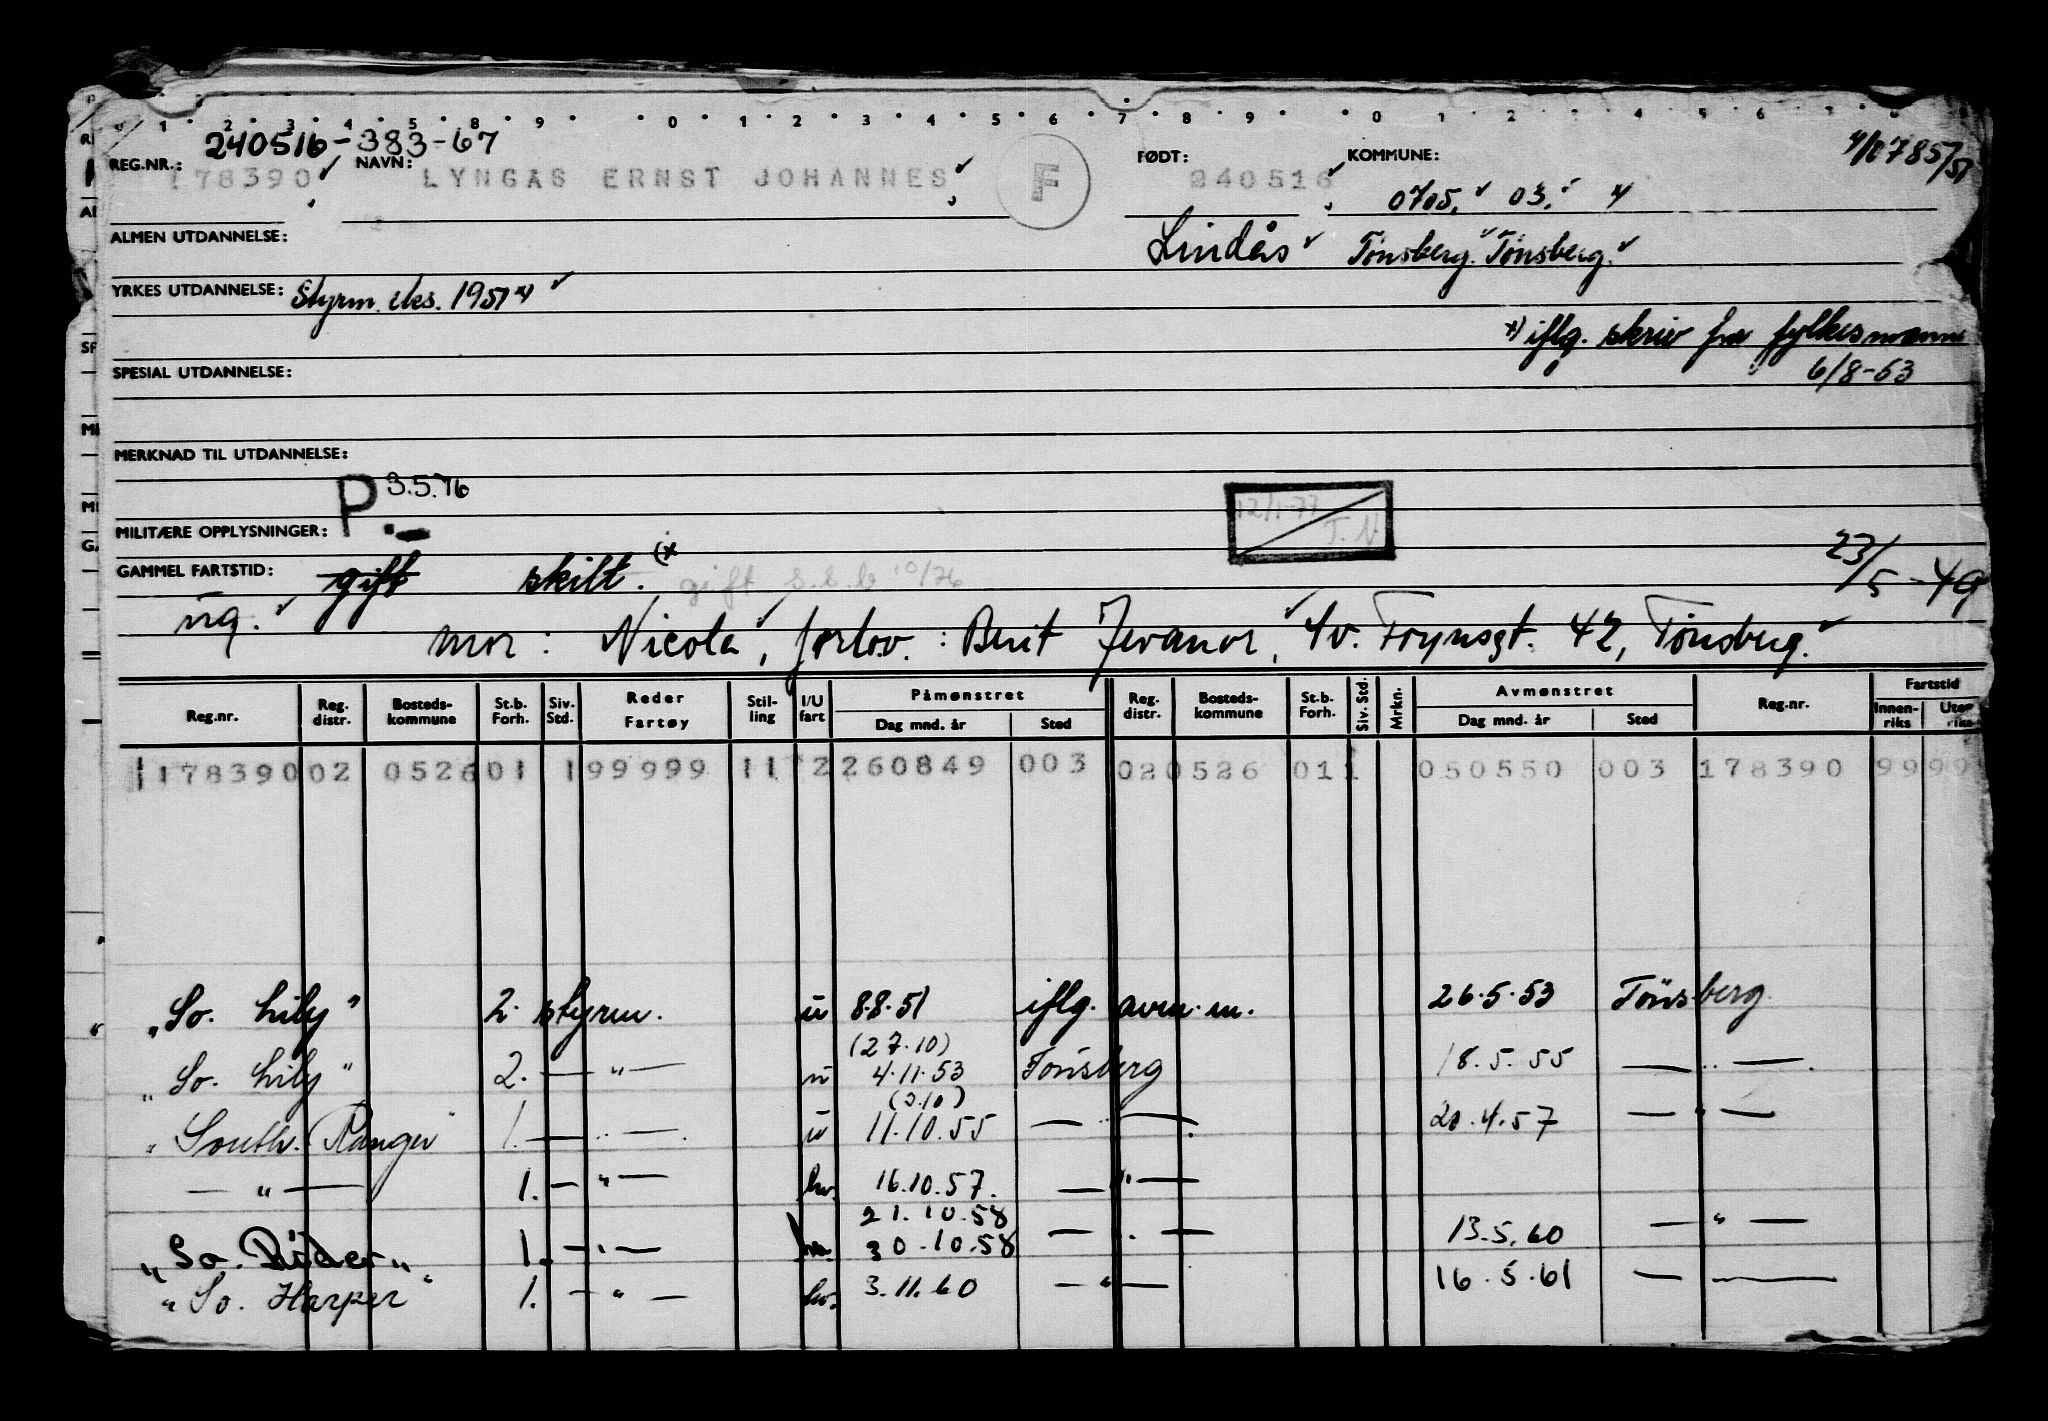 0 1 2 3 4 5 8 9 0 1 2 3 4 5 6 7 8 9 0 1 2 3 4 5 6
REG.NR.: 240516-383-67 NAVN: FØDT: KOMMUNE: 785/51
178390 LYNGAS ERNST JOHANNES F 240516 0705. 03.
ALMEN UTDANNELSE: Lindås Tønsberg. Tønsberg.
YRKES UTDANNELSE: Styrm. eks. 1951
x) iflg. skriv fra fylkesmann
SPESIAL UTDANNELSE: 6/8-63
MERKNAD TIL UTDANNELSE:
P 3.5.76
12/1-77
T.N
MILITÆRE OPPLYSNINGER:
GAMMEL FARTSTID: gift skilt. (x gift s.b.b 10/76 23/5-49
ug.
mor: Nicola, forlov.: Berit Jevanor, Sv. Foynsgt. 42, Tønsberg.
Reg.nr. Reg. distr. Bosteds-kommune St.b. Forh. Siv. Std. Reder Fartøy Stil-ling I/U fart Påmønstret Dag mnd. år Sted Reg. distr. Bosteds-kommune St.b. Forh. Siv. Std. Mrkn. Avmønstret Dag mnd. år Sted Reg.nr. Fartstid Innen-riks Uten riks
178390 02 0526 01 1 99999 11 72 260849 003 02 0526 01 1 050550 003 178390 9999
"So. Lily" 2. styrm. u 8.8.51 iflg. avm.m. 26.5.53 Tönsberg
(27.10)
"So. Lily" 2. — " — u 4.11.53 Tönsberg 18.5.55 — " —
(3.10)
"South. Ranger" 1. — " — u 11.10.55 — " — 20.4.57 — " —
— " — 1. — " — hv. 16.10.57. — " —
21.10.58
"So. Rider" 1. — " — hv. 30.10.58 — " — 13.5.60 — " —
"So. Harper" 1. — " — hv. 3.11.60 — " — 16.5.61 — —